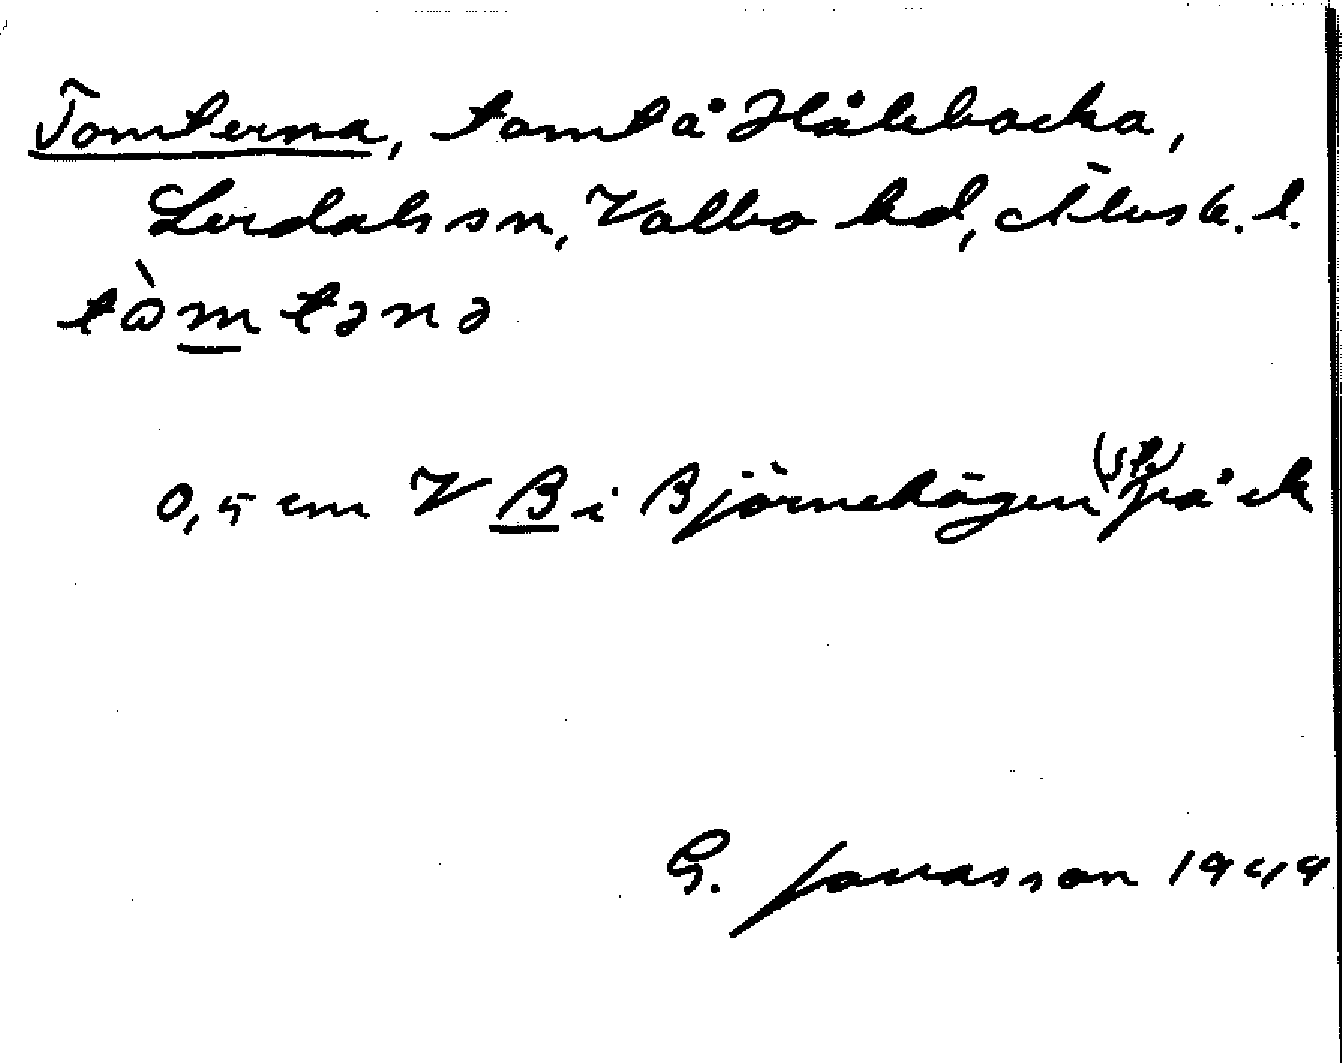 Tomterna, tomt å Håkebacka,
Lerdals sn, Valbo hd, Älvsb. l.
tòmtənə
0,5 cm V B i Björnehögen på ek
G. Jonasson 1949